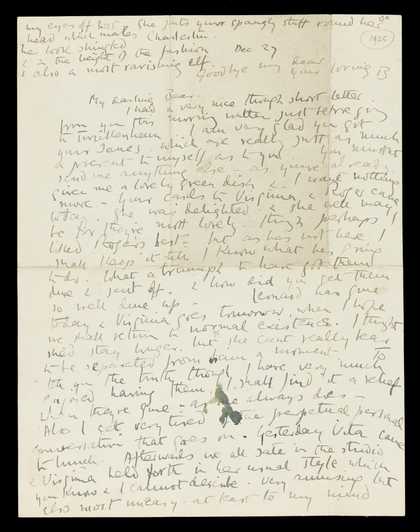 my eyes off her. She puts your spangly stuff round her
head which makes Charleston
he look shingled
& in the height of the fashion Dec 27
& also a most ravishing elf. 1925
Goodbye my dear
Your loving B
My darling Dear.
I had a very nice though short letter
from you this morning written just before going
to Twickenham. I am very glad you got
your James. which are really just as much
a present to myself as to you. You mustnt
send me anything else, as you've already
given me a lovely green dish & I want nothing
more. Your cards to Virginia & Roger came
today. She was delighted & she well may
be for they're most lovely. though perhaps I
liked Rogers best. but as he's not here I
shall keep it till I know what he's going
to do. What a triumph to have got them
done & sent off. & how did you get them
so well done up. Leonard has gone
today & Virginia goes tomorrow, when I hope
we shall return to normal existence. I thought
shed stay longer. but she cant really bear
to be separated from him a moment. To
tell you the truth though I have very much
enjoyed having them, I shall find it a relief
when they're gone. as one always does.
Also I get very tired of the perpetual personal
conversation that goes on. Yesterday Vita came
to lunch. Afterwards we all sate in the studio
& Virginia held forth in her usual style which
you know & I cannot describe. very amusing but
also most uneasy. at least to my mind